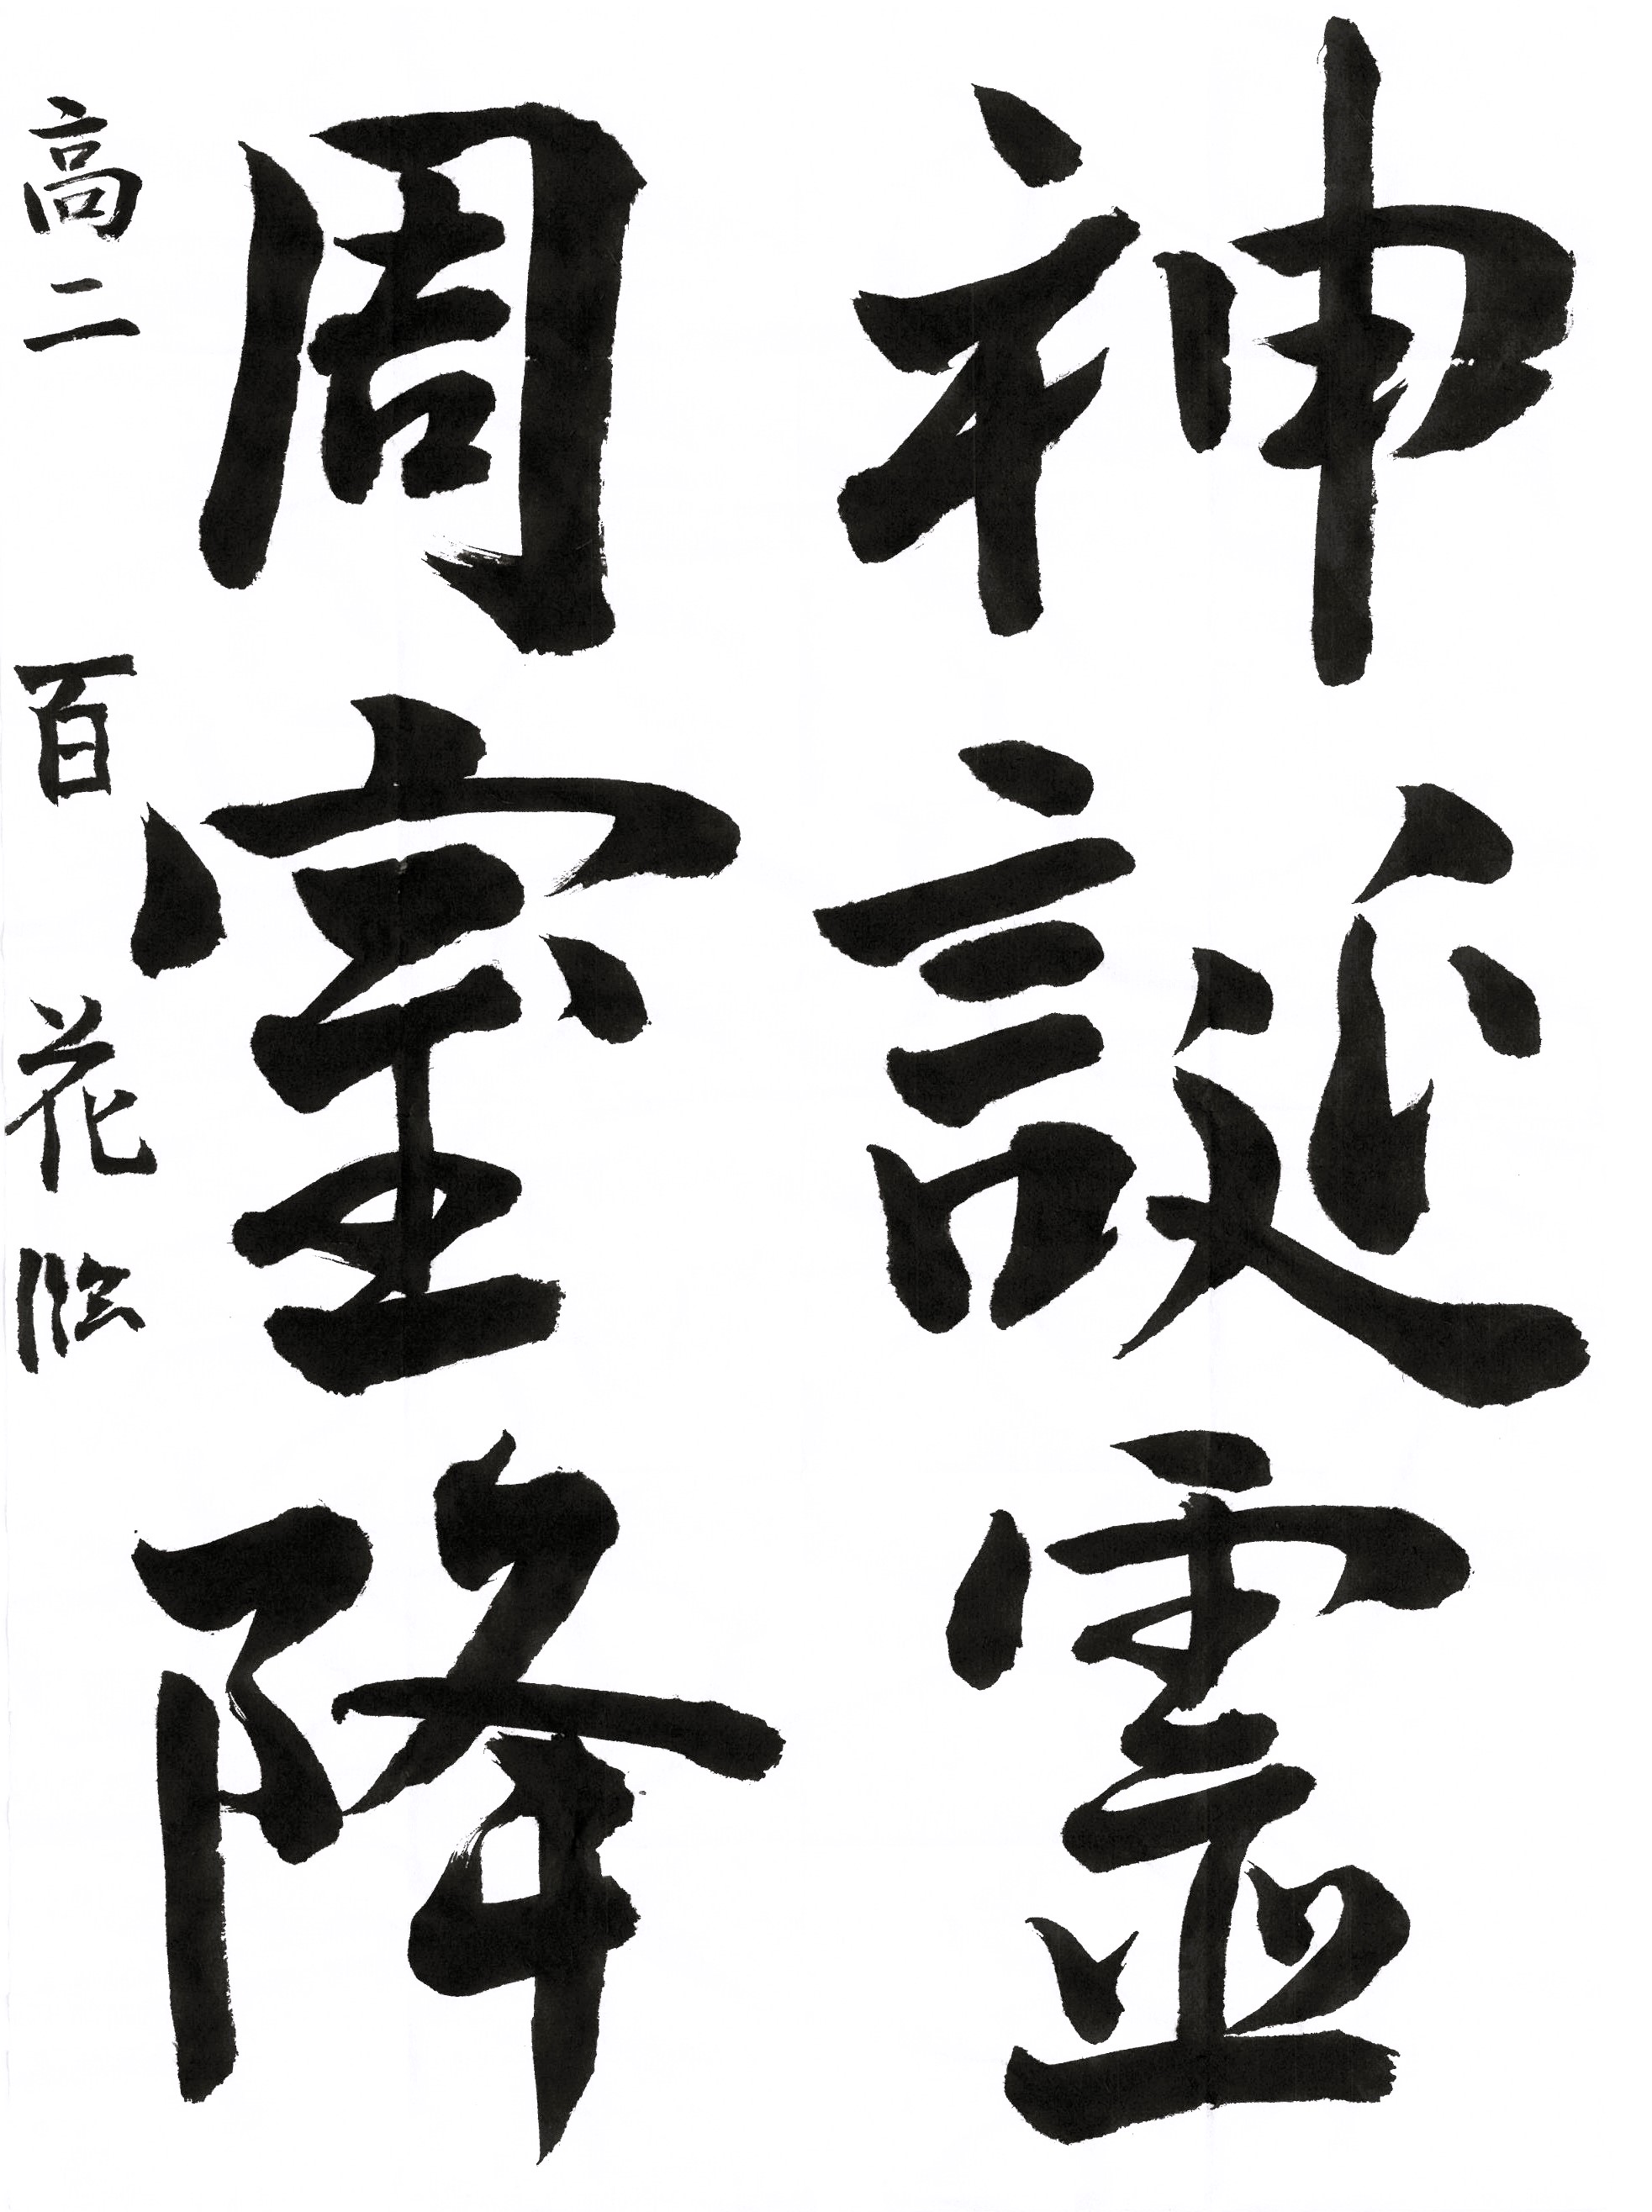 神誕霊
周室降
高二 百花臨